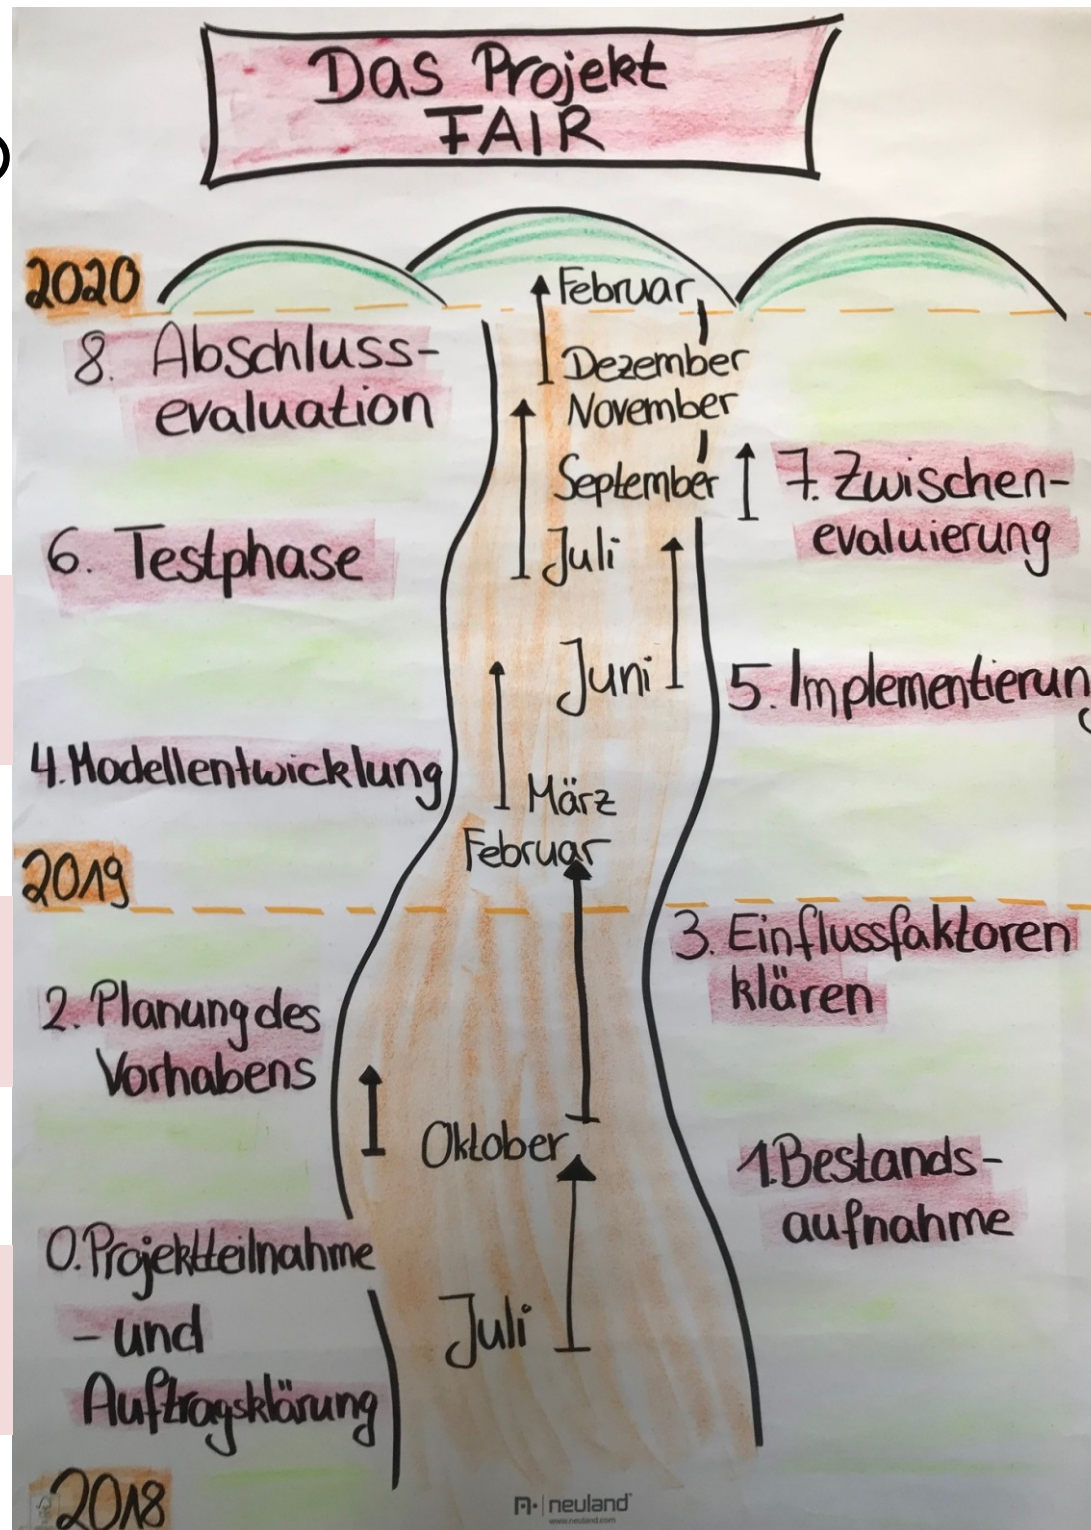 Das Projekt
FAIR
2020
Februar
8. Abschluss-
evaluation
Dezember
November
September
7. Zwischen-
evaluierung
6. Testphase
Juli
Juni
5. Implementierung
4. Modellentwicklung
März
Februar
2019
3. Einflussfaktoren
klären
2. Planung des
Vorhabens
Oktober
1. Bestands-
aufnahme
0. Projektteilnahme
- und
Auftragsklärung
Juli
2018
neuland
www.neuland.com